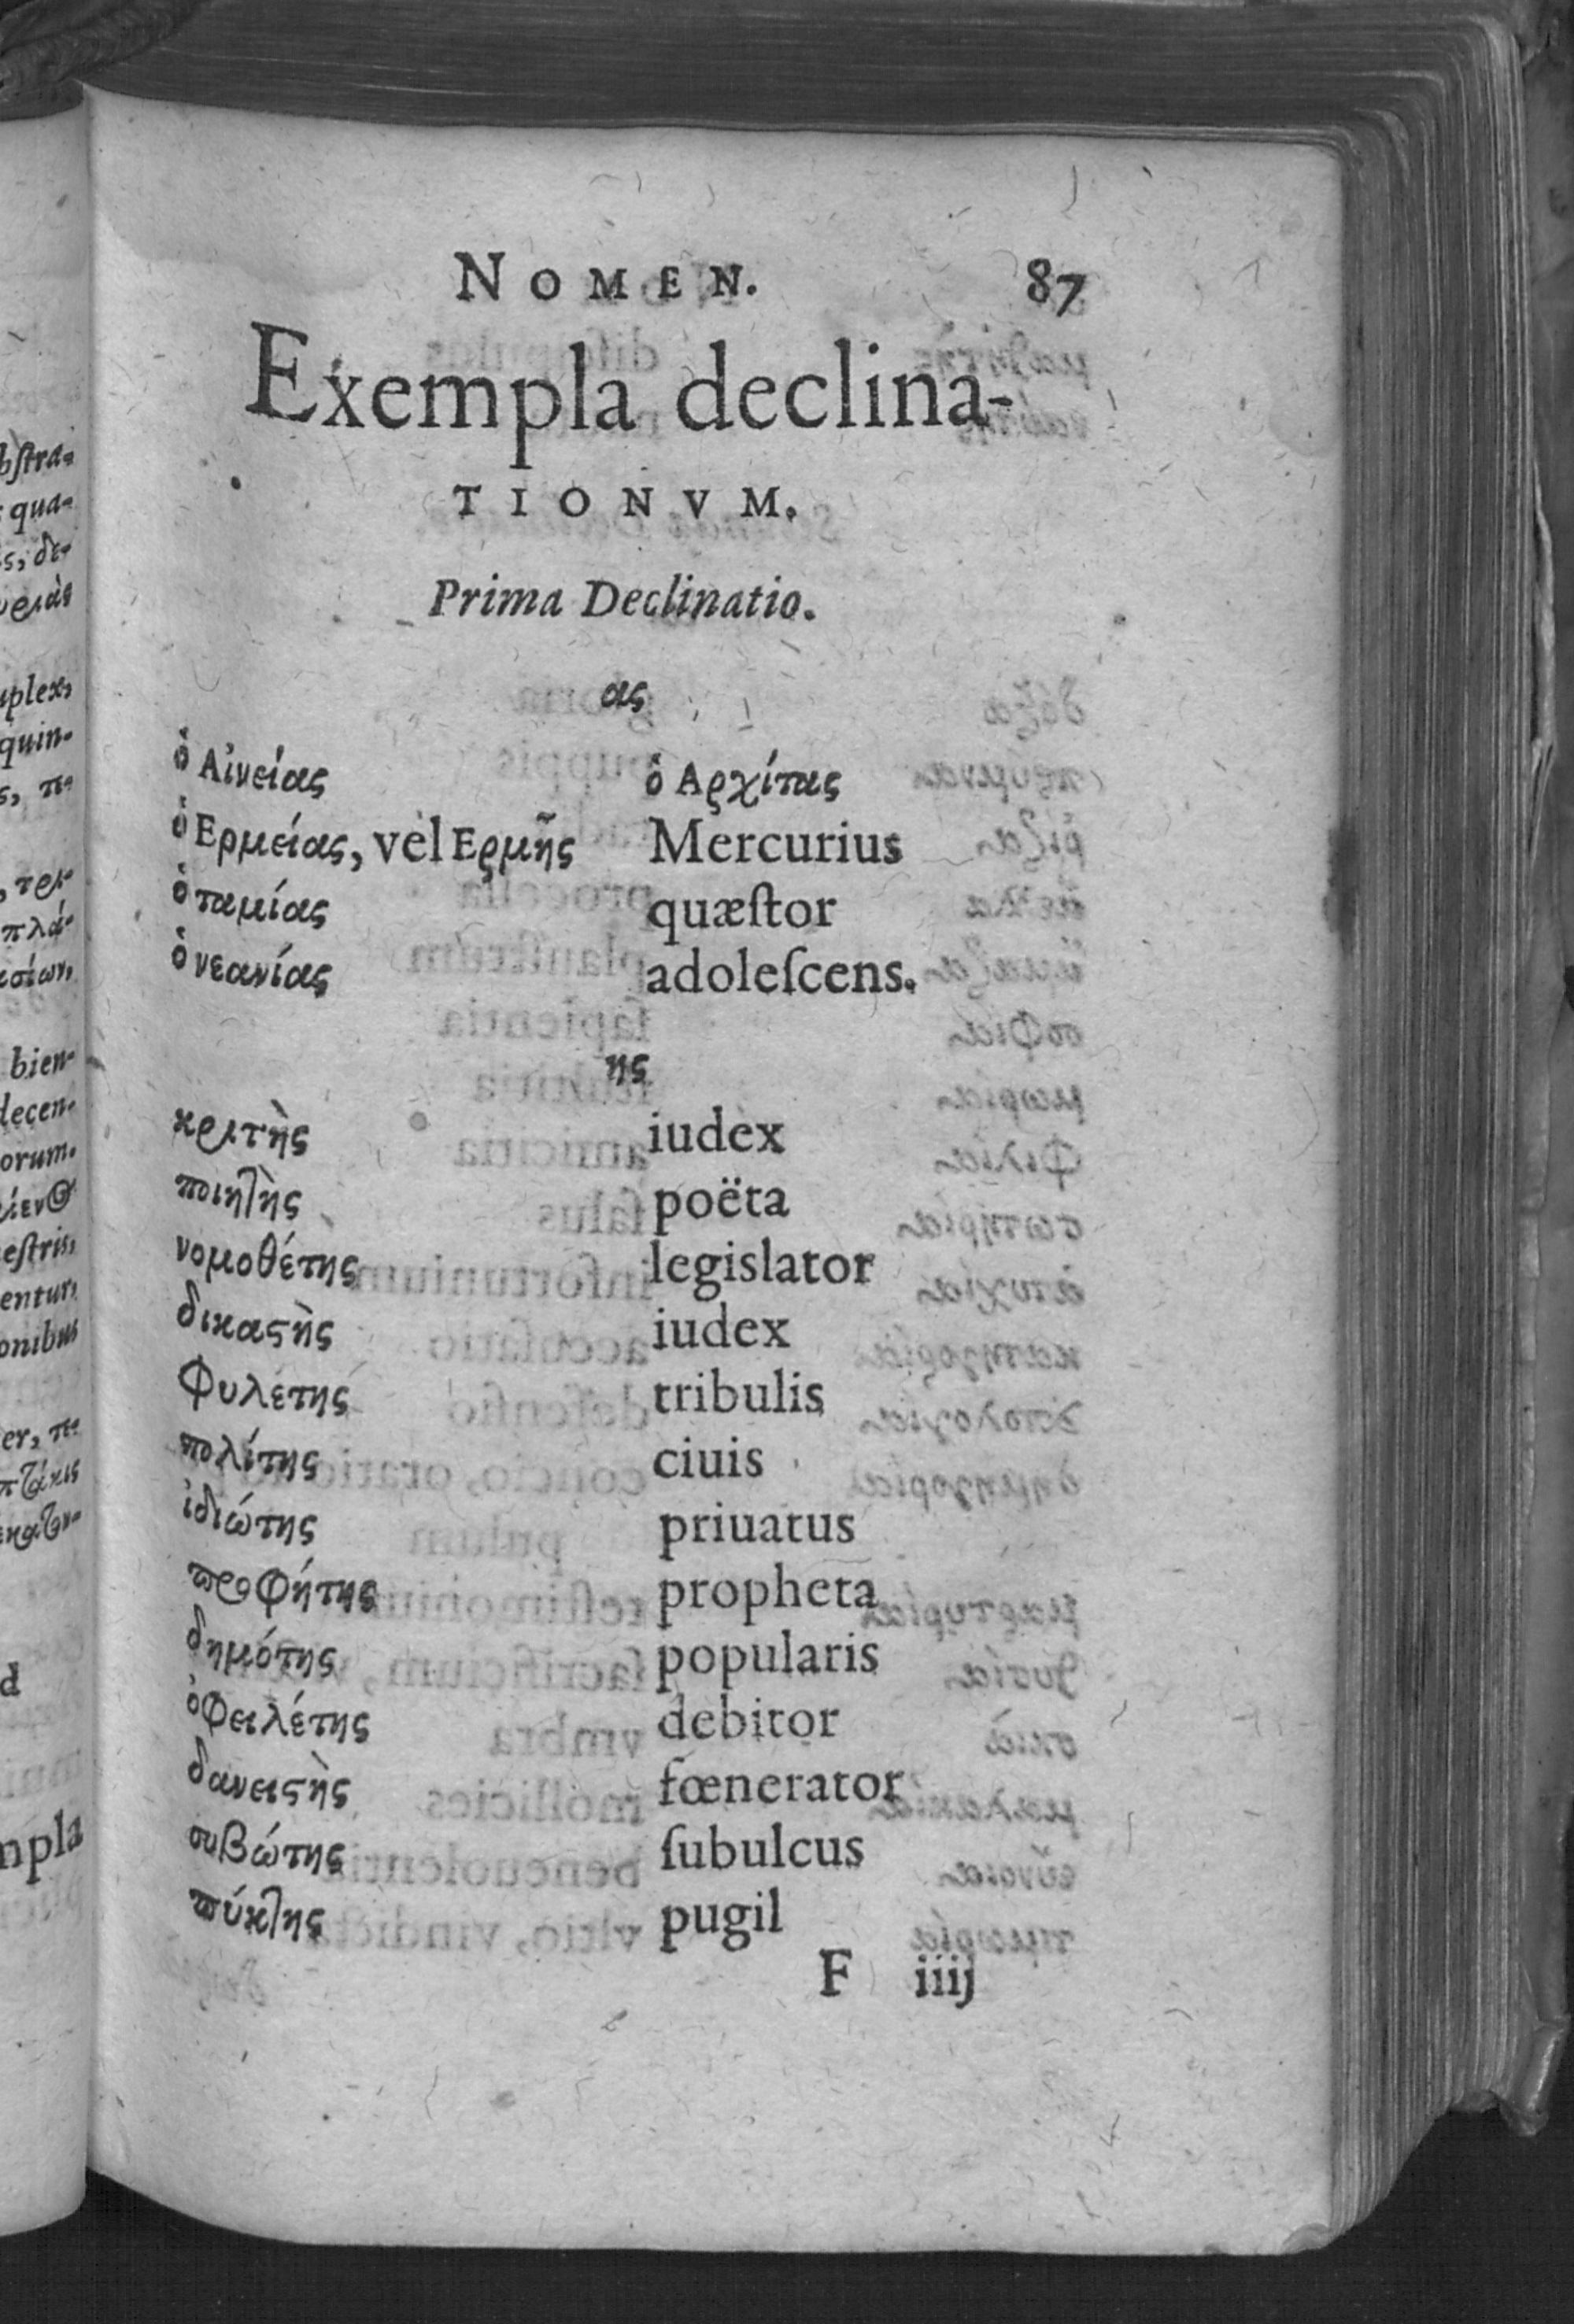 NOMEN. 87
Exempla declina-
TIONVM.
Prima Declinatio.
ας
ὁ Αἰνείας ὁ Αρχίτας
ὁ Ερμείας, vel Ερμῆς Mercurius
ὁ ταμίας quæſtor
ὁ νεανίας adoleſcens.
ης
κριτὴς iudex
ποιητὴς poëta
νομοθέτης legislator
δικαϛὴς iudex
φυλετης tribulis
πολίτης ciuis
ἰδιώτης priuatus
προφήτης propheta
δημότης popularis
ὀφειλέτης debitor
δανειϛὴς fœnerator
συβώτης ſubulcus
πύκτης pugil
F iiij
bſtra-
qua-
plex,
quin-
bien-
decen-
orum.
eſtris,
entur,
onibus
d
mpla